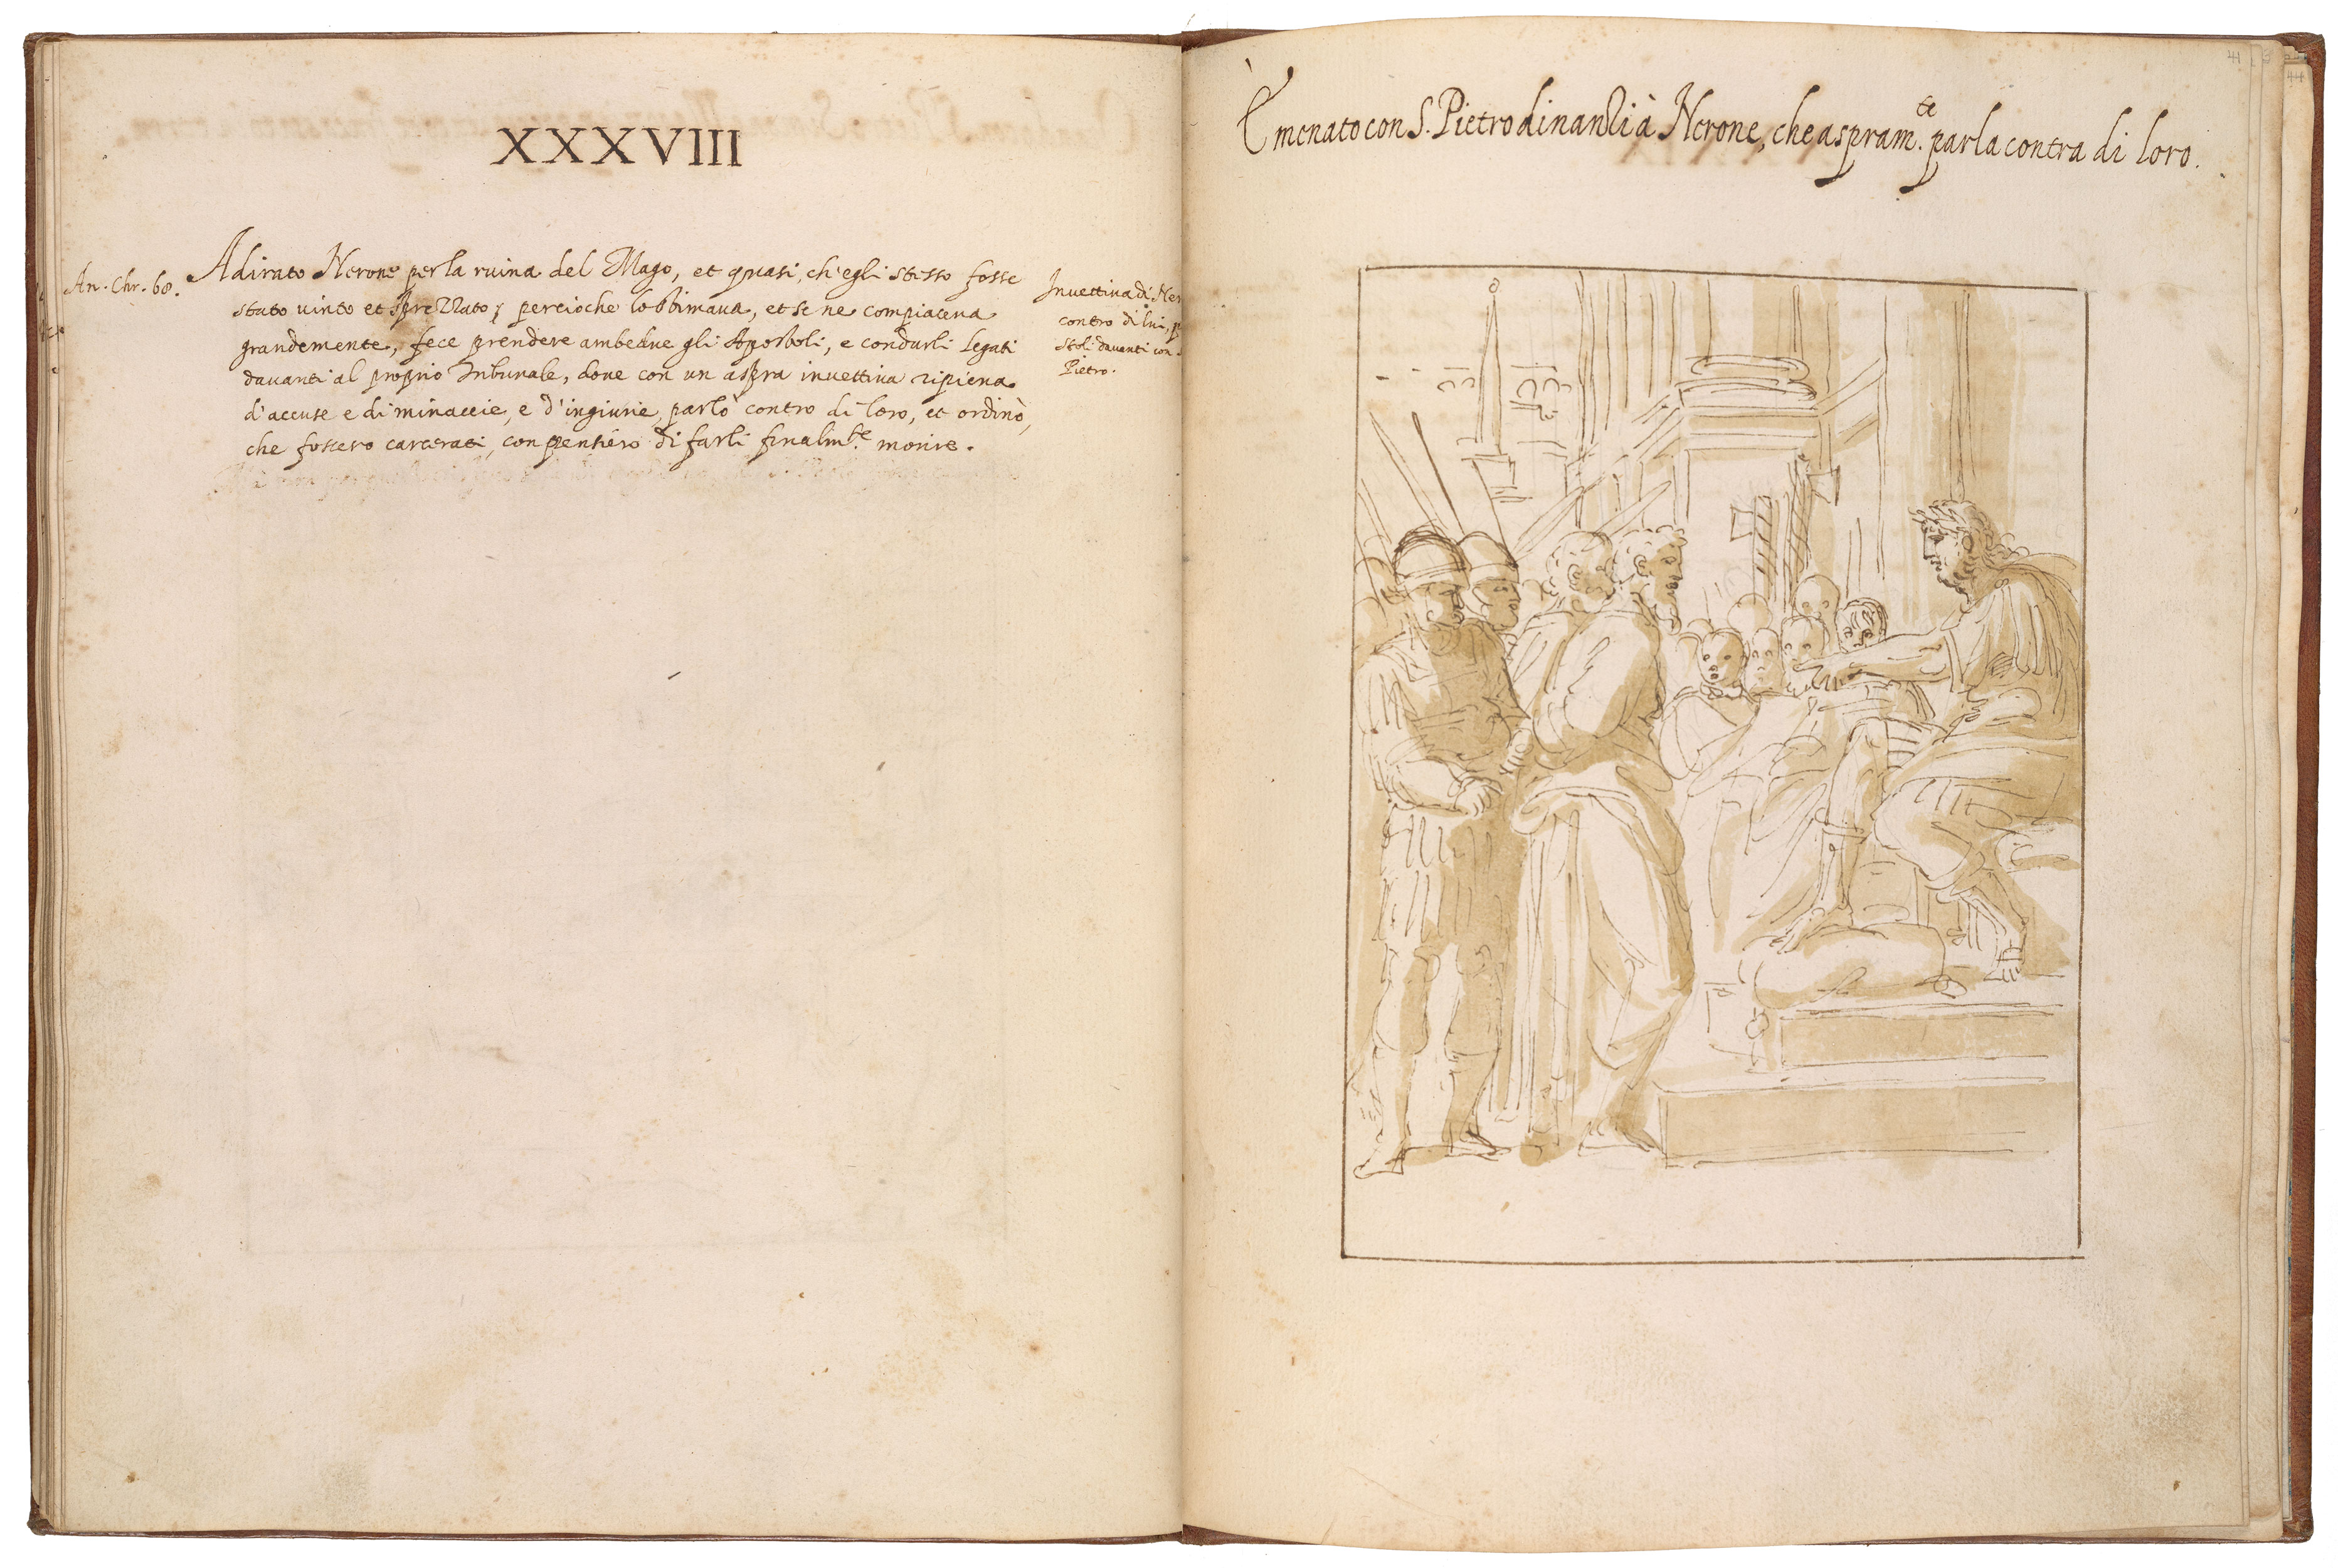 XXXVIII
An. Chr. 68.
Adirato Nerone per la ruina del Mago, et quasi, ch'egli stesso fosse
stato uinto et sprezzato; percioche lo stimaua, et se ne compiaceua
grandemente, fece prendere ambedue gli Apostoli, e condurli legati
dauanti al proprio Tribunale, doue con un aspra inuettiua ripiena
d'accuse e di minaccie, e d'ingiurie, parlò contro di loro, et ordinò,
che fossero carcerati, con pensiero di farli finalmte. morire.
Inuettiua di Ner
contro di lui,
stoli dauanti con
Pietro.
È menato con S. Pietro dinanzi à Nerone, che aspramte. parla contra di loro.
41
44